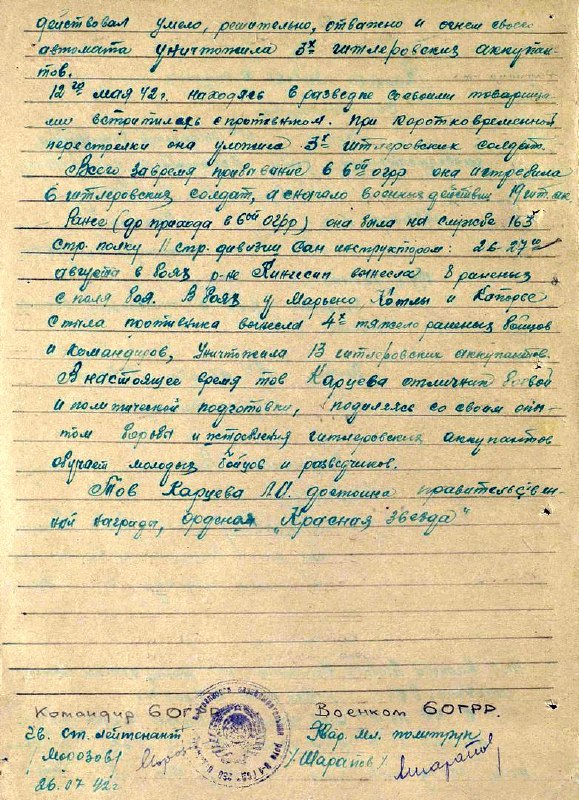 действовал умело, решительно, отважено и огнем своего
автомата уничтожила 3х гитлеровских аккупан-
тов.
12го мая 42г. находясь в разведке со своими товарища-
ми встретилась с противником. При коротковременной
перестрелки она уложила 3х гитлеровских солдат.
Всего завремя прибывание в 6ой огрр она истребила
6 гитлеровских солдат, а сначало военных действии 19 гит. ак
Ранее (до прихода в 6ой огрр) она была на службе 163
стр. полку 11 стр. дивизии Сан инструктором: 26-27го
августа в боях р-не Кингисеп вынесла 8 раненых
с поля боя. В боях у Марьено Котлы и Капорье
с тыла противника вынесла 4х тяжело раненых бойцов
и командиров, уничтожила 13 гитлеровских аккупантов.
В настоящее время тов Каруева отличник боевой
и политической подготовки, поделяясь со своим опы-
том борьбы и истребления гитлеровских аккупантов
обучает молодых бойцов и разведчиков.
Тов Каруева Л.И. достойна правительствен-
ной награды, орденом "Красная звезда"
Командир 6ОГРР. Военком 6ОГРР.
Гв. Ст. лейтенант Гвар. Мл. политрук
/Морозов/ /Шарапов/
26.07 42г